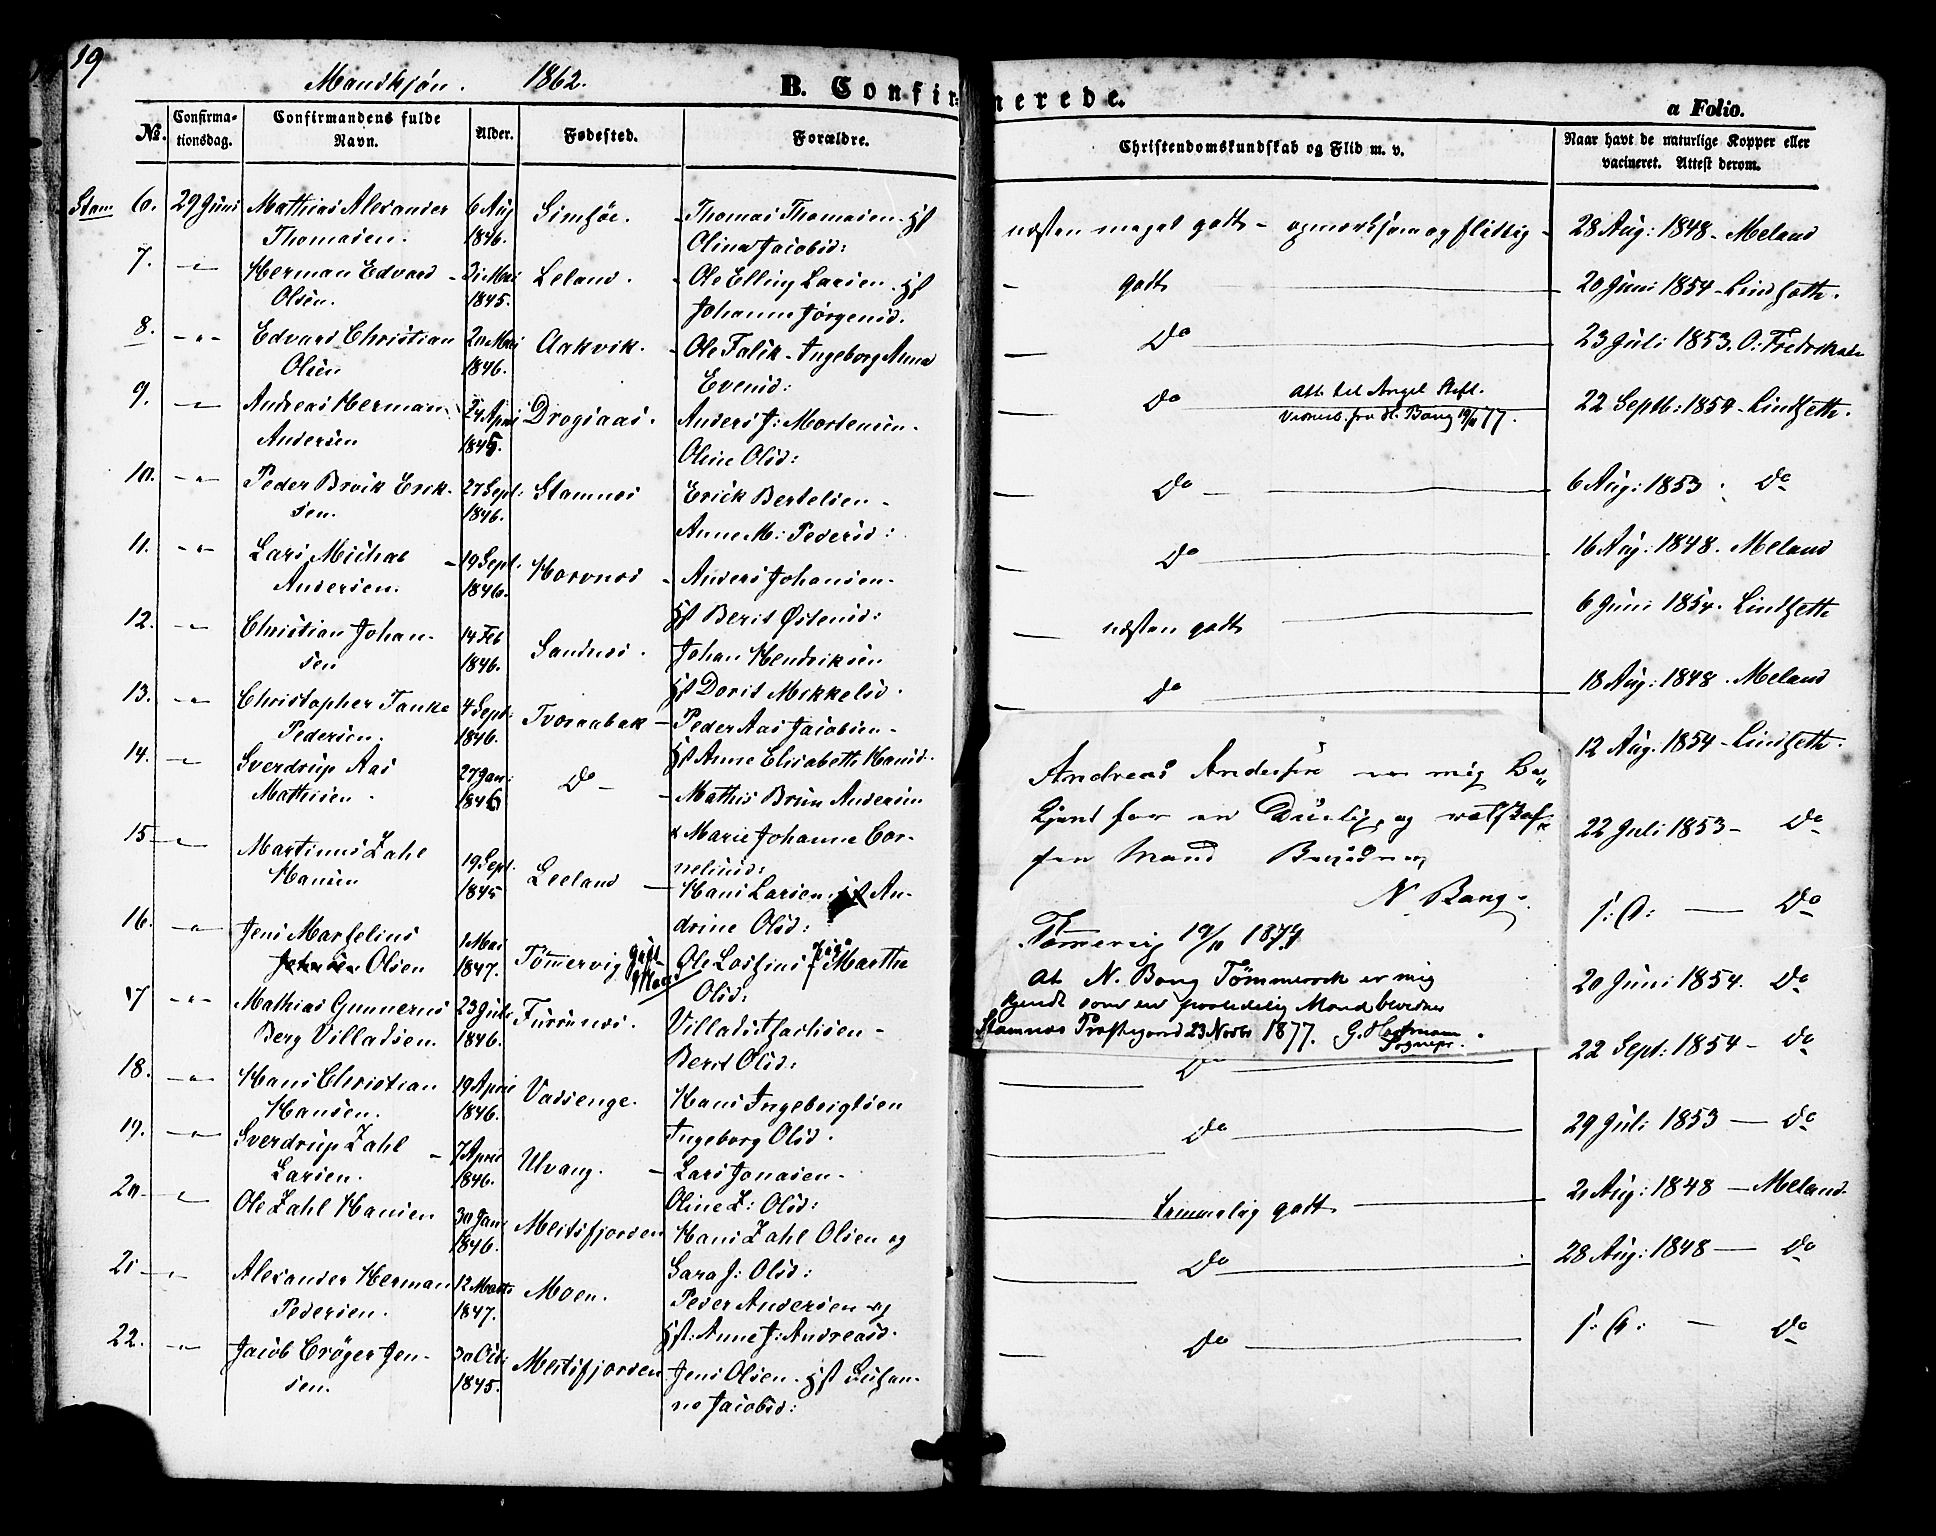 19
Mandkjøn. 1862.
B. Confirmerede.
a Folio.
No. Confirmationsdag. Confirmandens fulde Navn. Alder. Fødested. Forældre. Christendomskundskab og Flid m. v. Naar havt de naturlige Kopper eller vacineret. Attest derom.
Stam 6. 29 Juni Mathias Alexander 6 Aug Simsøe. Thomas Thomasen
Thomasen. 1846. Olina Jacobsd:
næsten meget godt - opmerksom og flittig - 28 Aug: 1848 - Meland
7. Herman Edvard 31 Mai Leland. Ole Elling Larsen
Olsen. 1845. Johanna Jørgensd.
godt 20 Juni 1854 - Lindseth.
8. Edvard Christian 20 Mai Aakvik. Ole Falik - Ingeborg Anna
Olsen 1846. Evensd:
Do 23 Juli 1853.
9. Andreas Herman 24 April Drogsaas. Anders J: Mortensen
Andersen 1845. Oline Olsd:
Do Att. til Angel Skift.
22 Septb: 1854 - Lindseth.
10. Peder Brvik Erik- 27 Sept. Stamnes Erick Bertelsen -
sen. 1846. Anne M: Pedersd:
Do 6 Aug: 1853 Do
11. Lars Michal 19 Sept. Horvnes Anders Johansen -
Andersen. 1846. Berit Østensd:
Do 16 Aug: 1848. Meland
12. Christian Johan- 14 Feb Sandnes. Johan Hendriksen
sen 1846. Dorit Mikkelsd.
næsten godt 6 Juni 1854. Lindseth
13. Christopher Tanke 4 Sept: Tværaabak - Peder Aas Jacobsen -
Pedersen. 1846. Anne Elisabeth Hansd.
Do 18 Aug: 1848. Meland
14. Sverdrup Aas 27 Jan: Do - Mathis Brun Andersen
Mathisen. 1846 & Marie Johanna Cor-
nelinsd:
12 Aug. 1854 - Lindseth.
15 Martinus Zahl 19 Sept. Leland Hans Larsen An-
Hansen 1845 drine Olsd:
22 Juli 1853 - Do
16. Jens Marselius 1 Mai Tømmervig Ole Martha
Olsen 1847. Olsd:
Do
17 Mathias Gunnerus 23 Juli Furunes. Villads Jachsen -
Berg Villadsen. 1846. Berit Olsd:
20 Juni 1854. Do
18. Hans Christian 19 April Vassenge. Hans Ingebrigtsen
Hansen. 1846. Ingeborg Olsd.
Do 22 Sept: 1854 - Do
19. Sverdrup Zahl 7 April Ulvang. Lars Jonasen -
Larsen. 1846. Oline Z: Olsd:
Do 29 Juli 1853 - Do
20 Ole Zahl Hansen 30 Jan: Meitsfjorden Hans Zahl Olsen og
1846. Sara J: Olsd:
temmelig godt 21 Aug: 1848 - Meland
21 Alexander Herman 12 Marts Moen. Peder Andersen og
Pedersen. 1847. Anne J: Andreasd.
Do 28 Aug: 1848 - Do
22. Jacob Crøger Jen- 30 Oct: Meitsfjorden Jens Olsen - Susan-
sen. 1845. na Jacobsd:
Do Do
Andreas Andersen er mig be-
kjendt for en Duelig, og retskaf-
fen Mand Bevidner
N. Bang -
Tømmervig 19/11 1877
At N. Bang Tømmervik er mig
kjendt som en paalidelig Mand bevidnes
Stamnes Præstegaard 23 Novbr 1877. G. Hofmann
Sognepr.